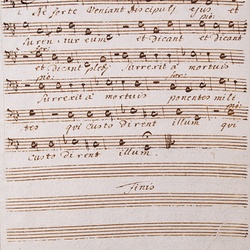 Ne forte Veniant Discipuli ejus et
pio:
furen: tur eum et Dicant et Dicant
pio:
et dicant plebi Surrexit a mortuis
pio: lor:
Surrexit a mortuis ponentes mili
tes qui custo dirent illum qui
custo dirent illum.
Finis